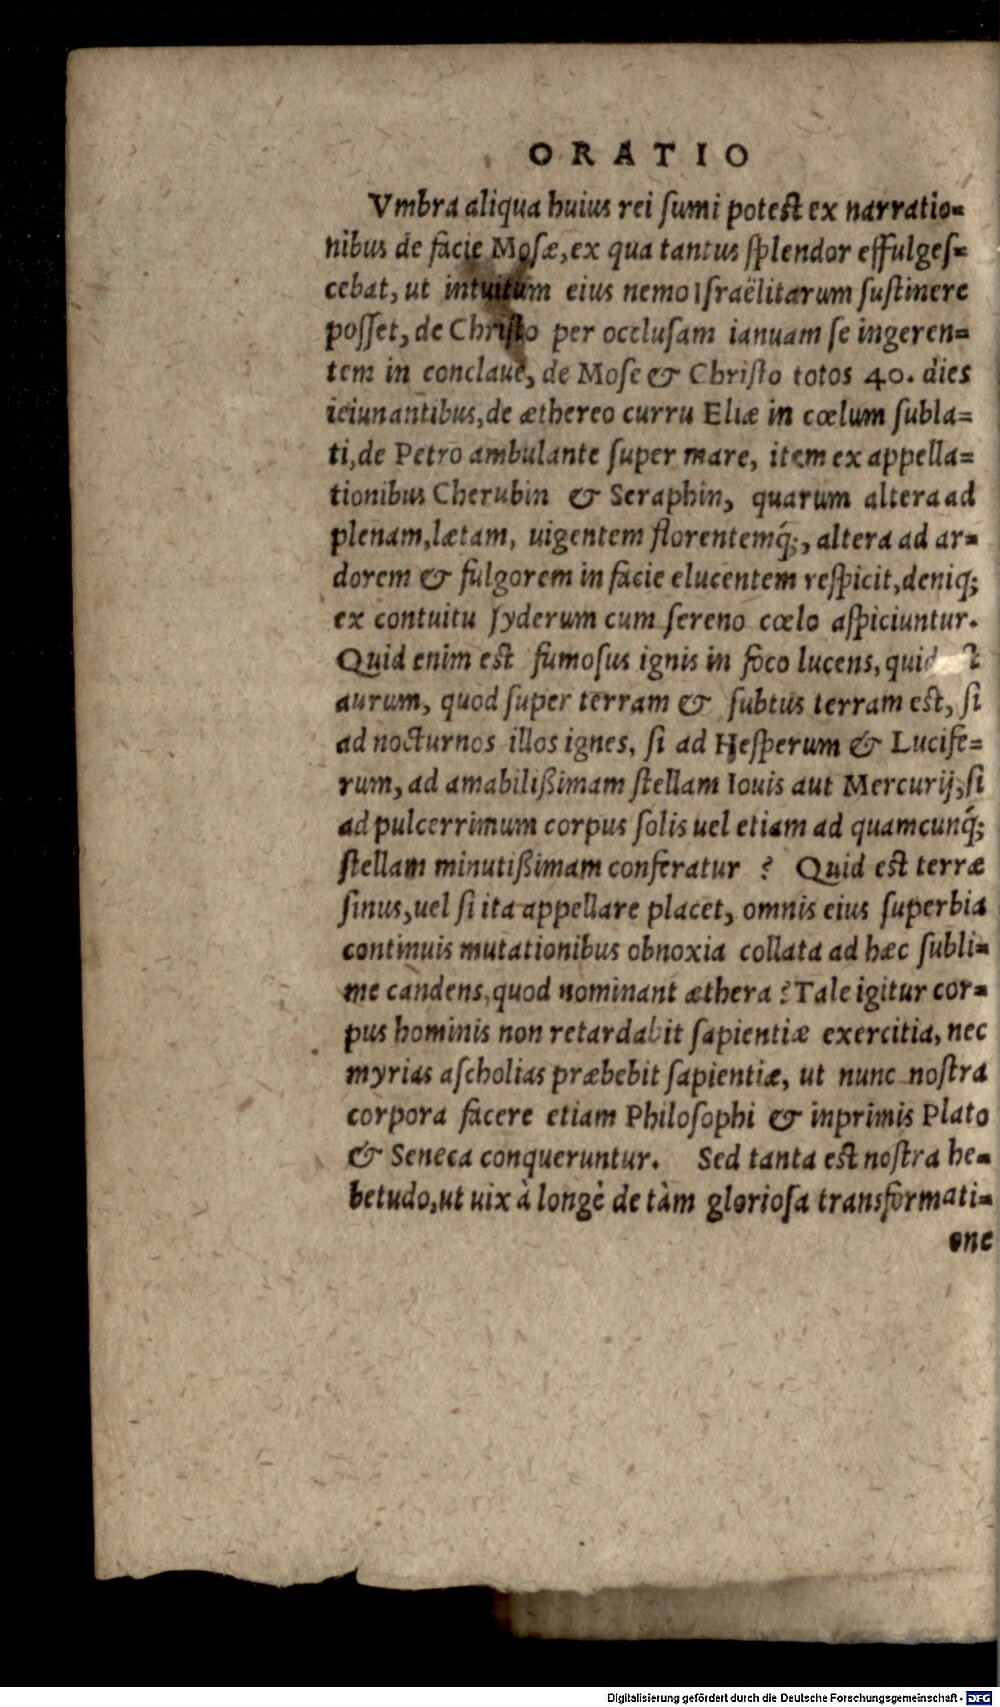 ORATIO
Vmbra aliqua huius rei ſumi poteſt ex narratio=
nibus de facie Moſæ, ex qua tantus ſplendor effulgeſ=
cebat, ut intuitum eius nemo Iſraëlitarum ſuſtinere
poſſet, de Chriſto per occluſam ianuam ſe ingeren=
tem in conclaue, de Moſe & Chriſto totos 40. dies
ieiunantibus, de æthereo curru Eliæ in cœlum ſubla=
ti, de Petro ambulante ſuper mare, item ex appella=
tionibus Cherubin & Seraphin, quarum altera ad
plenam, lætam, uigentem florentemq́;, altera ad ar=
dorem & fulgorem in facie elucentem reſpicit, deniq;
ex contuitu ſyderum cum ſereno cœlo aſpiciuntur.
Quid enim eſt fumoſus ignis in foco lucens, quid
aurum, quod ſuper terram & ſubtus terram eſt, ſi
ad nocturnos illos ignes, ſi ad Heſperum & Lucife=
rum, ad amabilißimam ſtellam Iouis aut Mercurij, ſi
ad pulcerrimum corpus ſolis uel etiam ad quamcunq́;
ſtellam minutißimam conferatur ? Quid eſt terræ
ſinus, uel ſi ita appellare placet, omnis eius ſuperbia
continuis mutationibus obnoxia collata ad hæc ſubli=
me candens, quod nominant æthera ? Tale igitur cor=
pus hominis non retardabit ſapientiæ exercitia, nec
myrias aſcholias præbebit ſapientiæ, ut nunc noſtra
corpora facere etiam Philoſophi & inprimis Plato
& Seneca conqueruntur. Sed tanta eſt noſtra he=
betudo, ut uix à longè de tàm glorioſa transformati=
one
Digitalisierung gefördert durch die Deutsche Forschungsgemeinschaft - DFG